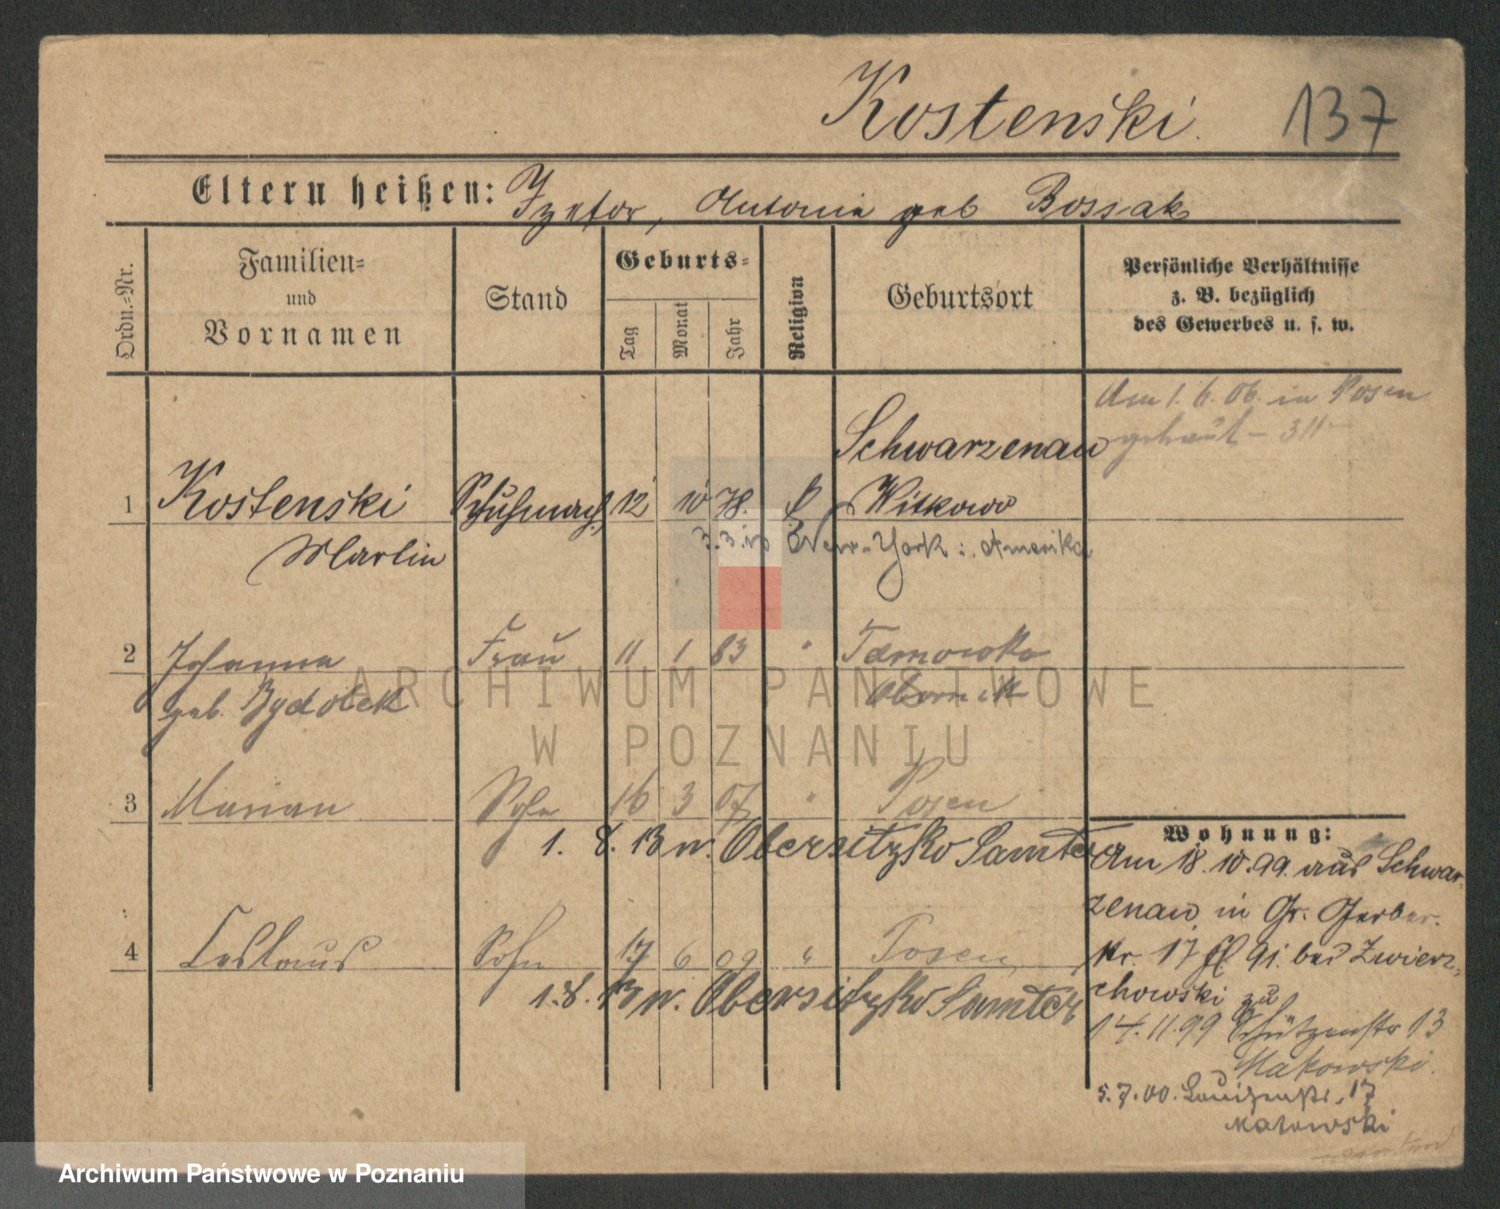 Kostenski. 137
Eltern heißen: Izydor, Antonie geb Bossak
Ordn.=Nr.
Familien=
und
Vornamen
Stand
Geburts=
Tag
Monat
Jahr
Religion
Geburtsort
Persönliche Verhältnisse
z. B. bezüglich
des Gewerbes u. s. w.
Am 1. 6. 06. in Posen
getraut
Schwarzenau
1 Kostenski Schuhmach. 12 10 78. k Witkowo
Martin
3.3.13 New-York i. Amerika
2 Johanna Frau 11 1 83 " Tarnowko
geb. Bydolek Obornik
3 Marian Sohn 16 3 07 " Posen
1. 8. 13 n. Obersitzko Samter
4 Ceslaus Sohn 17 6 09 " Posen
1. 8. 13 n. Obersitzko Samter
Wohnung:
Am 18. 10. 99. aus Schwar-
zenau in Gr. Gerber-
str. 17 bei Zwierz-
chowski zu
14. 11. 99 Schützenstr 13
Makowski.
5. 7. 00. Louisenstr. 17
Makowski
ARCHIWUM PAŃSTWOWE
W POZNANIU
Archiwum Państwowe w Poznaniu